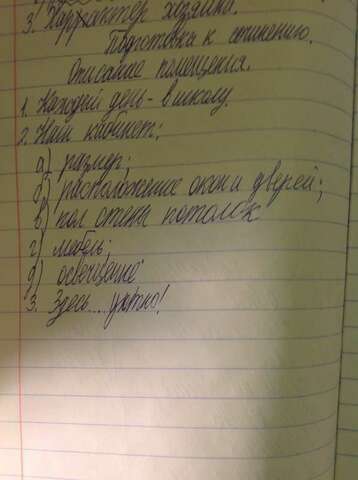 3. Характер хозяина.
Подготовка к сочинению.
Описание помещения.
1. Каждый день - в школу.
2. Наш кабинет:
а) размер;
б) расположение окон и дверей;
в) пол стены потолок
г) мебель;
д) освещение
3. Здесь... уютно!